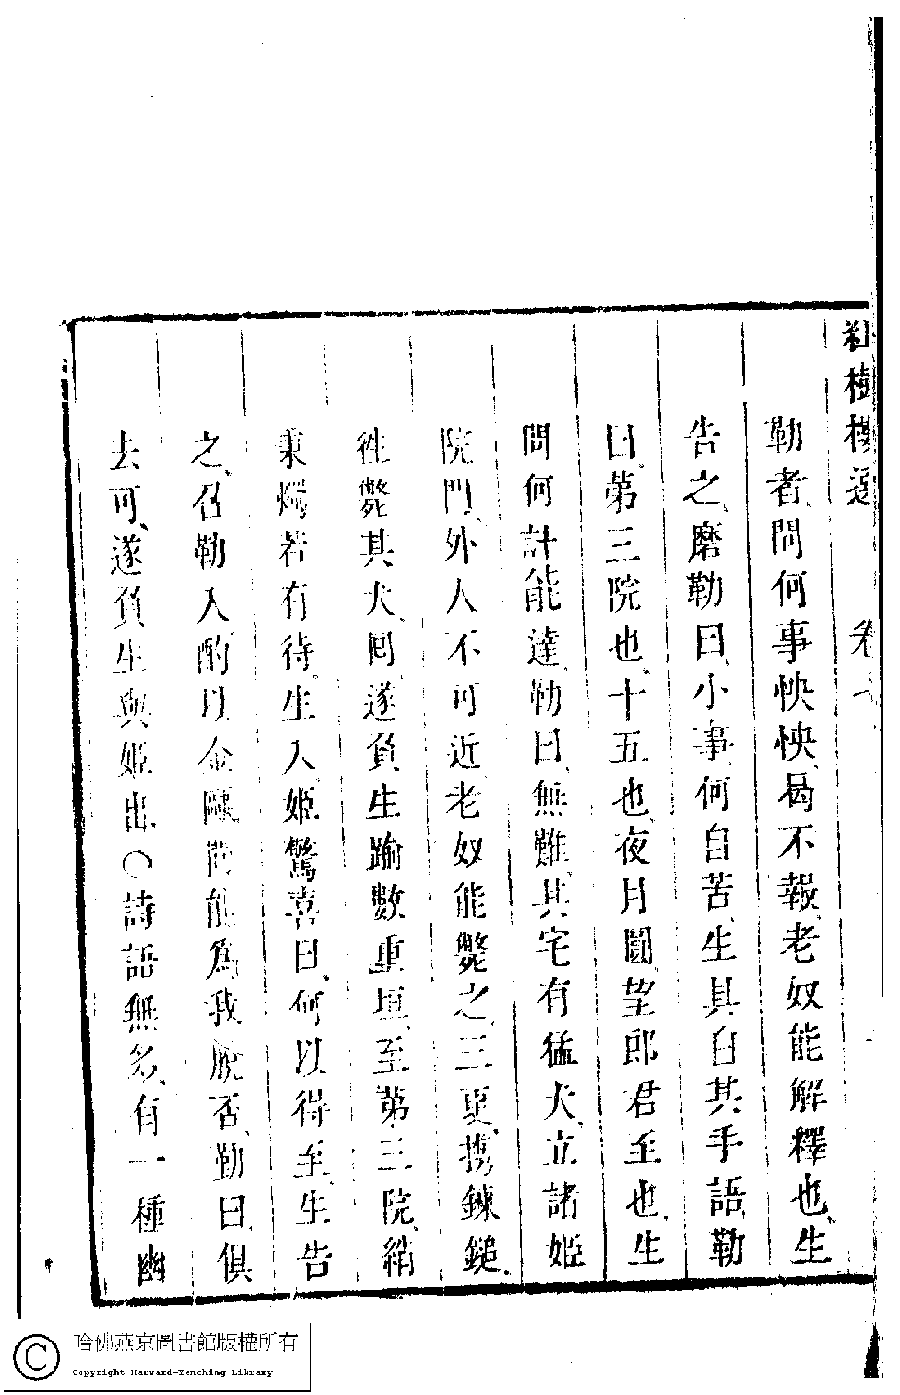 紅樹樓選　卷十
勒者、問何事怏怏、曷不報、老奴能解釋也、生
告之、磨勒曰、小事、何自苦、生具白其手語、勒
曰、第三院也、十五也、夜月圓、望郎君至也、生
問何計能達、勒曰、無難、其宅有猛犬、立諸姬
院門、外人不可近、老奴能斃之、三更、携鍊鎚、
徃斃其犬、囘遂負生踰數重垣、至第三院、綃
秉燭若有待、生入、姬驚喜曰、何以得至、生告
之、召勒入、酌以金甌、問能爲我脫否、勒曰、俱
去可、遂負生與姬出、○詩語無多、有一種幽
哈佛燕京圖書館版權所有
Copyright Harvard-Yenching Library